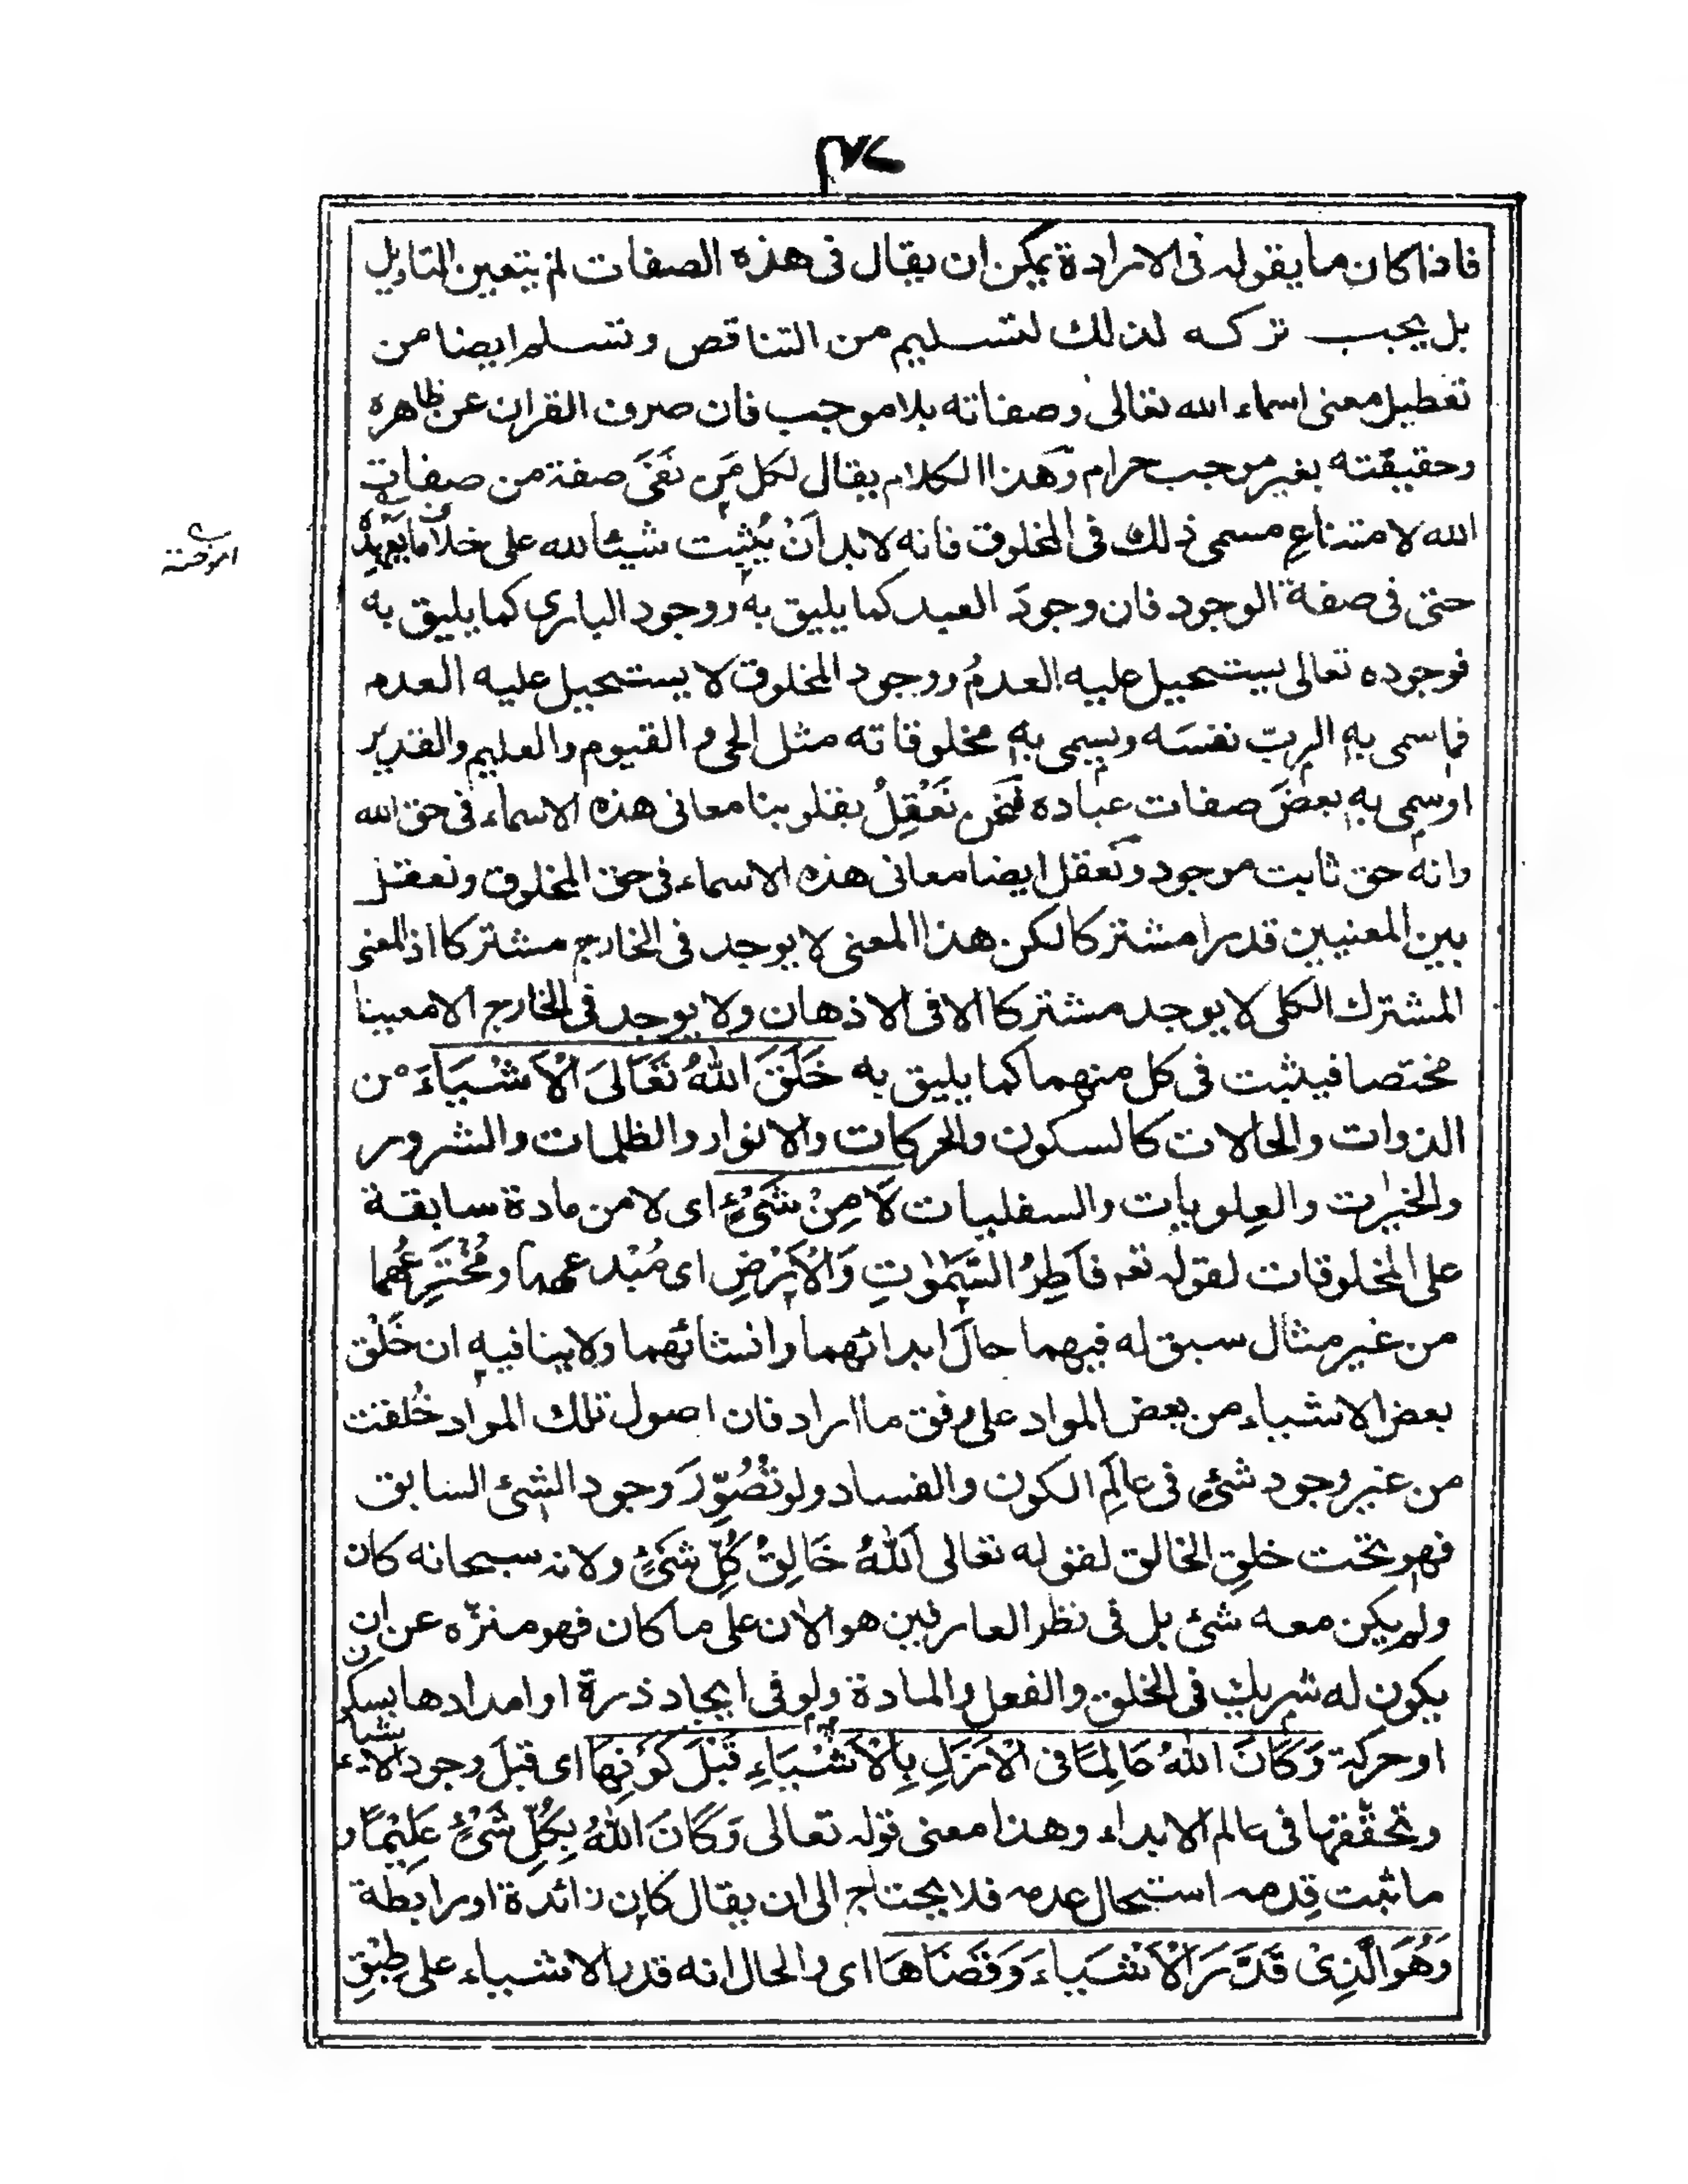 فاذا كان ما يقوله فى الارادة يمكن ان يقال فى هذه الصفات لم يتعين التاويل
بل يجب تركه لذلك لتسليم من التناقص وتسلم ايضا من
تعطيل معنى اسماء الله تعالى وصفاته بلا موجب فان صرف القران عن ظاهره
وحقيقته بغير موجب حرام وهذا الكلام يقال لكل مَن نَفَى صفة من صفات
الله لامتناعِ مسمى ذلك فى المخلوق فانه لابد اَنْ يُثبِت شيئا لله على خلاف ما يعهده
حتى فى صفة الوجود فان وجودَ العبد كما يليق به ووجود البارى كما يليق به
فوجوده تعالى يستحيل عليه العدمُ ووجود المخلوق لا يستحيل عليه العدم
فما سمى به الرب نفسَه ويسمى به مخلوقاته مثل الحى والقيوم والعليم والقدير
اوسمى به بعضَ صفات عباده فنحن نَعْقِلُ بقلوبنا معانى هذه الاسماء فى حق الله
وانه حق ثابت موجود ونعقل ايضا معانى هذه الاسماء فى حق المخلوق ونعقل
بين المعنيين قدرا مشتركا لكن هذا المعنى لا يوجد فى الخارج مشتركا اذ المعنى
المشترك الكلى لا يوجد مشتركا الا فى الاذهان ولا يوجد فى الخارج الا معينا
مختصا فيثبت فى كل منهما كما يليق به خَلَقَ اللهُ تَعَالىَ الْاَشْيَاءَ من
الذوات والحالات كالسكون والحركات والانوار والظلمات والشرور
والخيرات والعِلويات والسفليات لَا مِنْ شَىْءٍ اى لا من مادة سابقة
على المخلوقات لقوله تعه فَاطِرُ السَّمٰوٰتِ وَالْاَرْضِ اى مُبْدعهما ومُخْتَرِعُهما
من غير مثال سبق له فيهما حالَ ابدائهما وانشائهما ولا ينافيه ان خَلْق
بعض الاشياء من بعض المواد على وفق ما اراد فان اصول تلك المواد خُلقت
من غير وجود شئ فى عالَمِ الكون والفساد ولو تُصُوِّرَ وجود الشئ السابق
فهو تحت خلقِ الخالق لقوله تعالى اَللّٰهُ خَالِقُ كُلِّ شَىْءٍ ولانه سبحانه كان
ولم يكن معه شئ بل فى نظر العارفين هو الاٰن على ما كان فهو منزّه عن ان
يكون له شريك فى الخلق والفعل والمادة ولو فى ايجاد ذرة او امدادها بسكون
او حركة وَكَانَ اللهُ عَالِمًا فى الْاَزَلِ بِالْاَشْيَاءِ قَبْلَ كَوْنِهَا اى قبلَ وجود الاشياء
وتحقّقها فى عالم الابداء وهذا معنى قوله تعالى وَكَانَ اللهُ بِكُلِّ شَىْءٍ عَلِيْمًا و
ما ثبت قِدمه استحال عدمه فلا يحتاج الى ان يقال كان زائدة او رابطة
وَهُوَ الَّذِىْ قَدَّرَ الْاَشْيَاءَ وَقَضَاهَا اى والحال انه قدر الاشياء على طِبْقِ